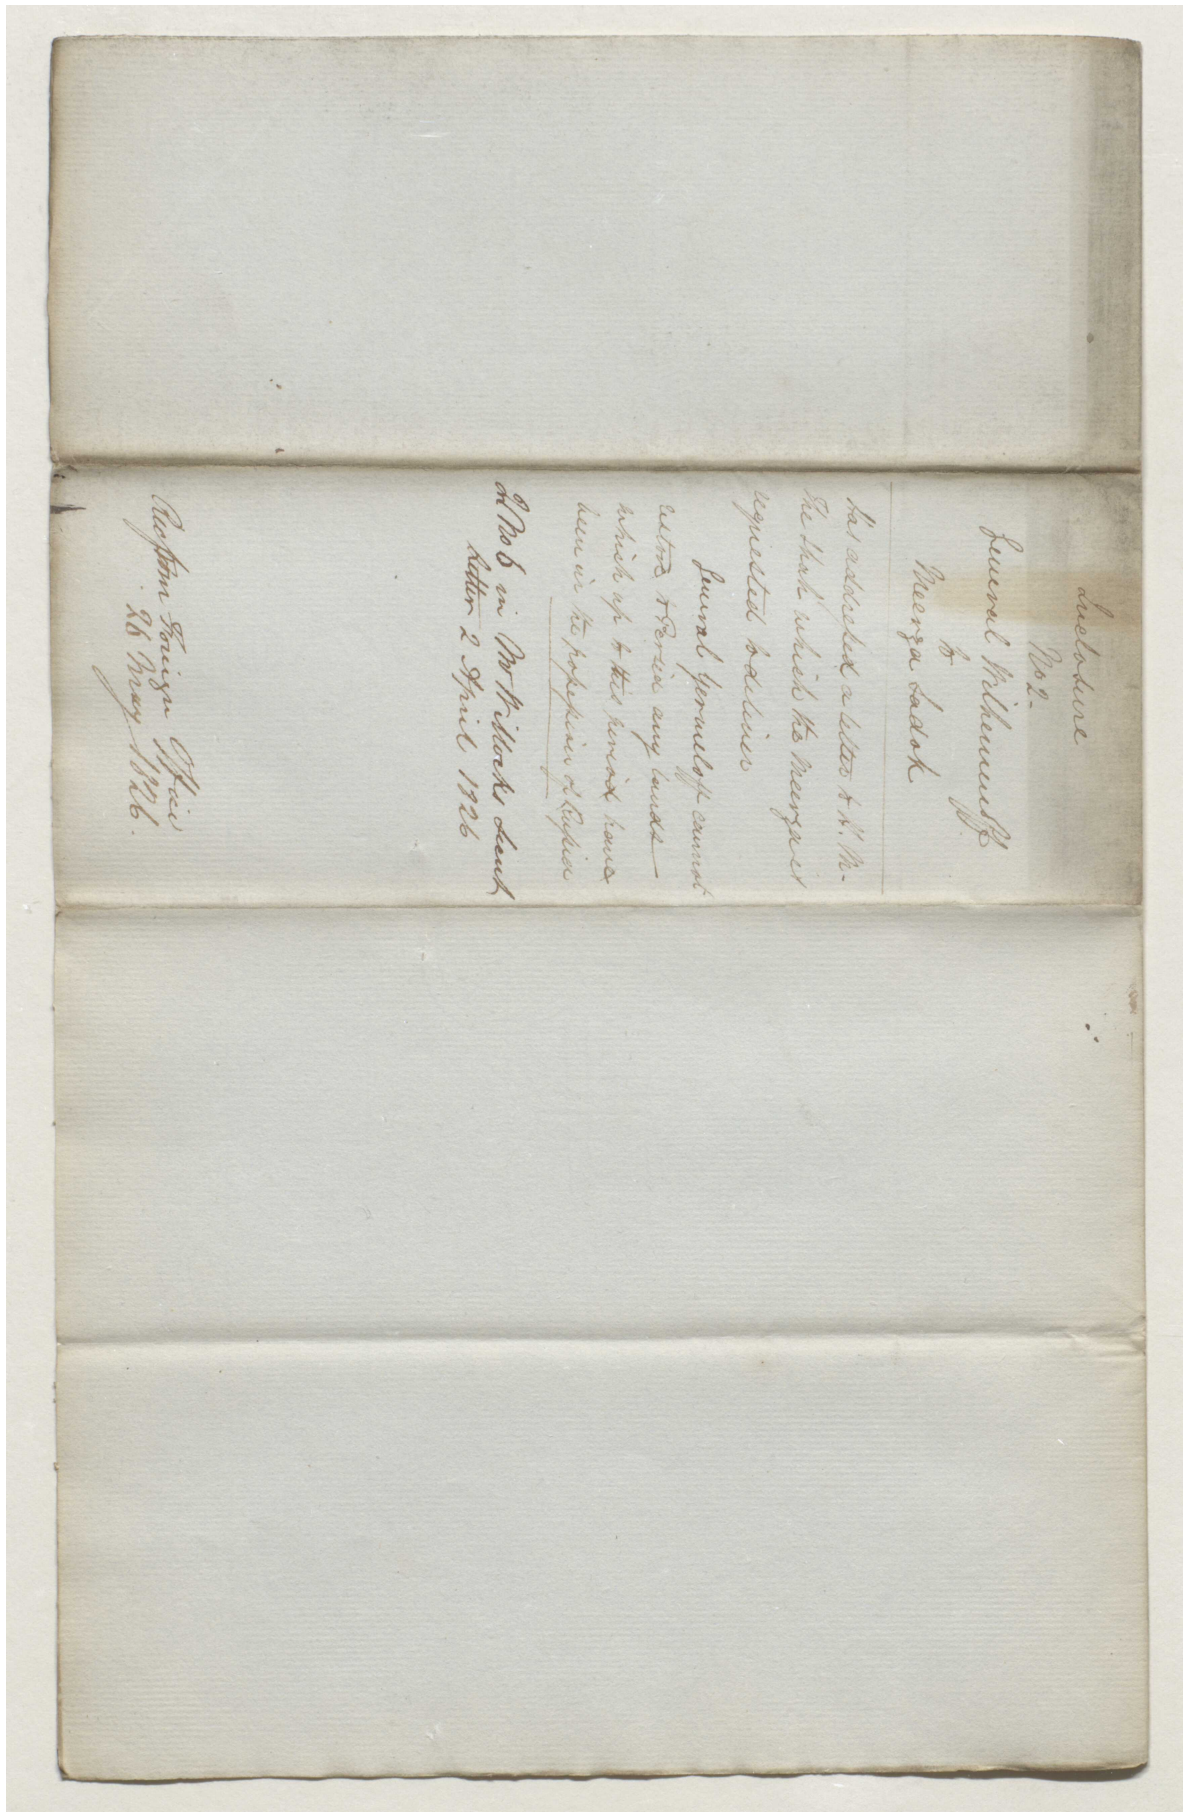 Inclosure
No 2-
General Wilhemenoff
to
Meerza Sadok
has addressed a letter to H. M-
The Shah which the Meerza is
requested to deliver
General Yermoloff cannot
restore to Persia any lands
which up to this period have
been in the possession of Russia
In No 6 in Mr Willocks Secret
Letter 2 April 1826
Rec from Foreign Office
26 May 1826.